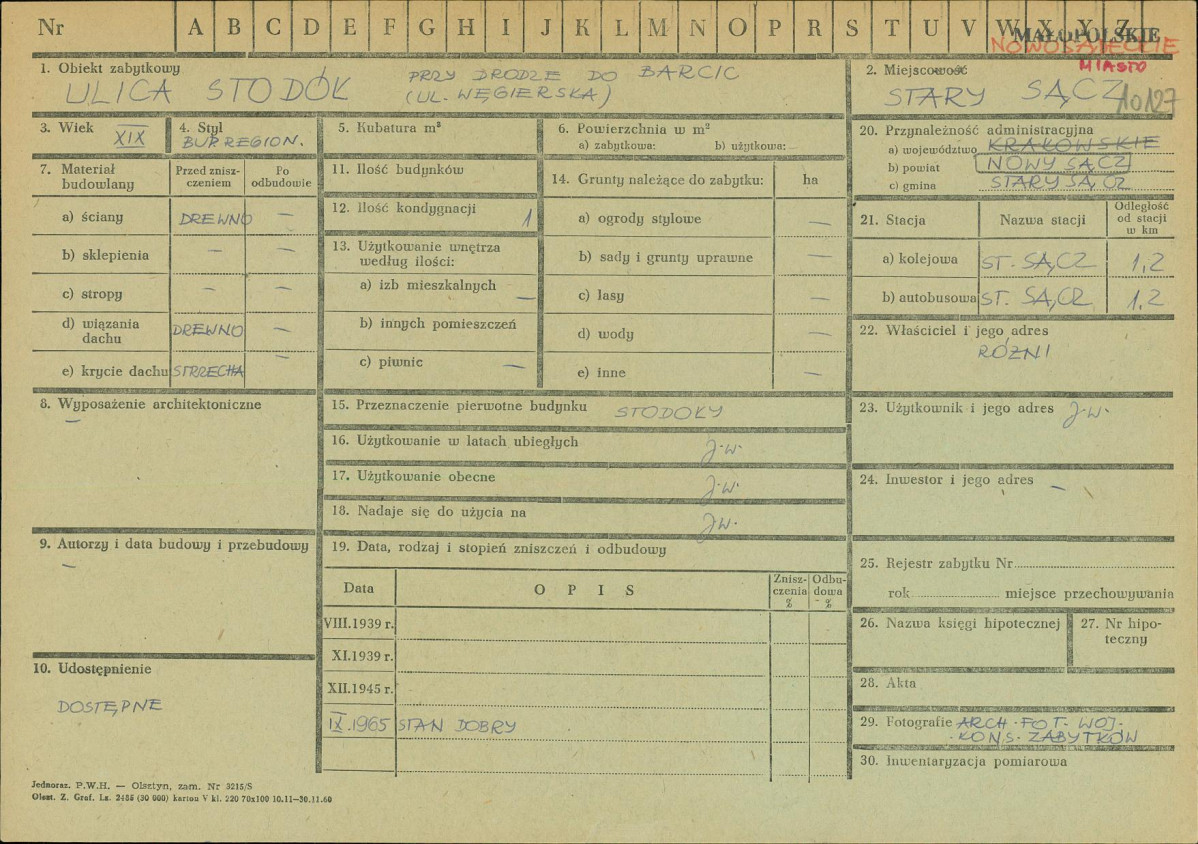 Nr A B C D E F G H I J K L M N O P R S T U V W X Y Z
MAŁOPOLSKIE
NOWOSĄDECKIE
MIASTO
1. Obiekt zabytkowy
ULICA STODÓŁ PRZY DRODZE DO BARCIC
(UL. WĘGIERSKA)
2. Miejscowość
STARY SĄCZ
10127
3. Wiek
XIX
4. Styl
BUD REGION.
5. Kubatura m³
6. Powierzchnia w m²
a) zabytkowa: b) użytkowa:
7. Materiał budowlany
Przed znisz-
czeniem
Po
odbudowie
a) ściany DREWNO —
b) sklepienia — —
c) stropy — —
d) wiązania
dachu DREWNO —
e) krycie dachu STRZECHA —
11. Ilość budynków
12. Ilość kondygnacji 1
13. Użytkowanie wnętrza
według ilości:
a) izb mieszkalnych —
b) innych pomieszczeń
c) piwnic —
14. Grunty należące do zabytku: ha
a) ogrody stylowe —
b) sady i grunty uprawne —
c) lasy —
d) wody —
e) inne —
20. Przynależność administracyjna
a) województwo KRAKOWSKIE
b) powiat NOWY SĄCZ
c) gmina STARY SĄCZ
21. Stacja Nazwa stacji
Odległość
od stacji
w km
a) kolejowa ST. SĄCZ 1,2
b) autobusowa ST. SĄCZ 1,2
22. Właściciel i jego adres
RÓŻNI
8. Wyposażenie architektoniczne
—
15. Przeznaczenie pierwotne budynku STODOŁY
16. Użytkowanie w latach ubiegłych j.w.
17. Użytkowanie obecne j.w.
18. Nadaje się do użycia na j.w.
23. Użytkownik i jego adres j.w.
24. Inwestor i jego adres —
9. Autorzy i data budowy i przebudowy
—
19. Data, rodzaj i stopień zniszczeń i odbudowy
Data OPIS
Znisz-
czenia
%
Odbu-
dowa
%
VIII.1939 r.
XI.1939 r.
XII.1945 r.
IX.1965 STAN DOBRY
25. Rejestr zabytku Nr
rok miejsce przechowywania
26. Nazwa księgi hipotecznej
27. Nr hipo-
teczny
28. Akta
29. Fotografie ARCH. FOT. WOJ.
KONS. ZABYTKÓW
30. Inwentaryzacja pomiarowa
10. Udostępnienie
DOSTĘPNE
Jednoraz. P.W.H. — Olsztyn, zam. Nr 3215/S
Olszt. Z. Graf. Lz. 2486 (30 000) karton V kl. 220 70x100 10.11—30.11.60